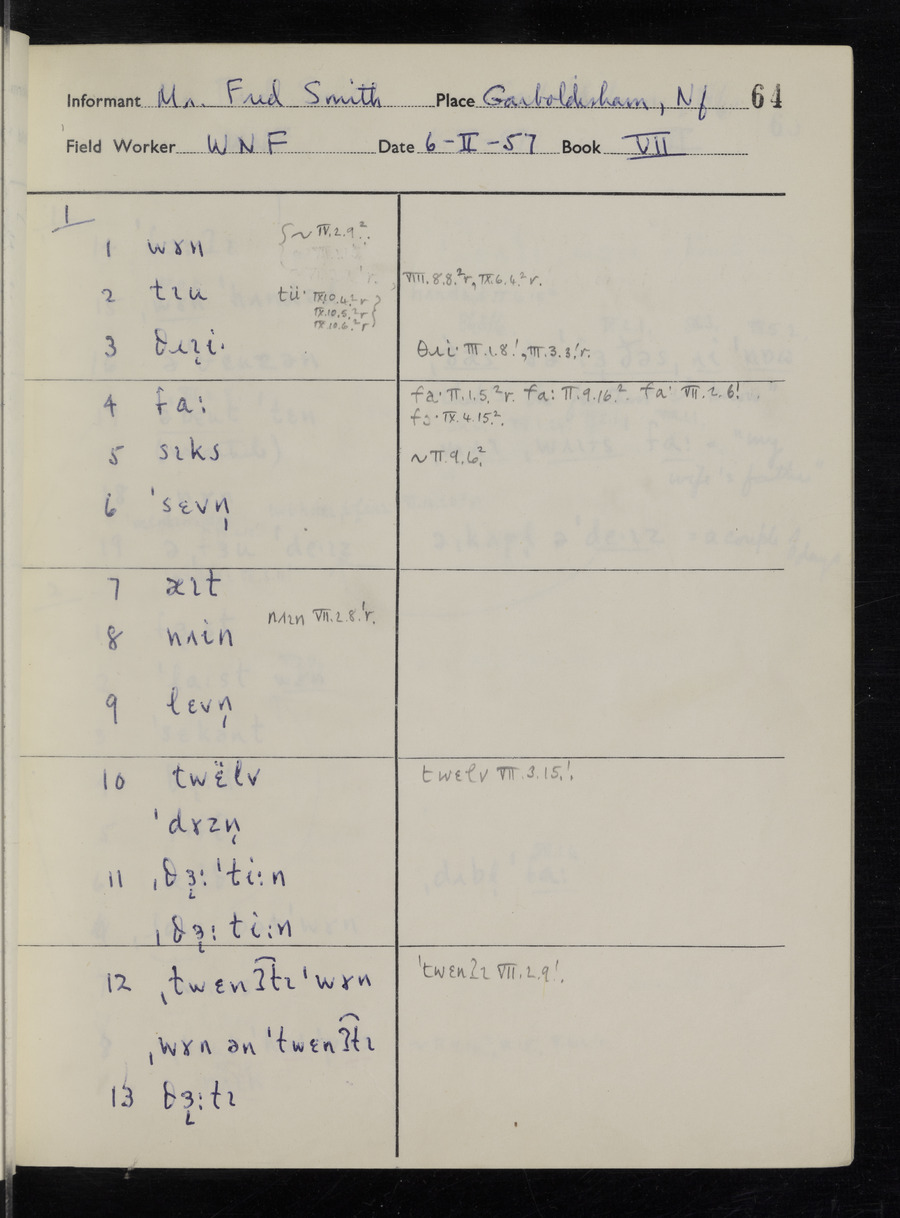 Informant Mr. Fred Smith Place Garboldisham, Nf 64
Field Worker W N F Date 6-II-57 Book VII
1
1 wɤn ~ IV.2.9.²
2 tɪu tü· IX.10.4.²r VIII.8.8.²r, IX.6.4.²r.
IX.10.5.²r
IX.10.6.²r
3 θɹɪ̨i· θɹi· III.1.8!, III.3.3!r.
4 fa: fa· II.1.5.²r. fa: II.9.16.² fa· VII.2.6!
fɜ· IX.4.15.²
5 sɪks ~ II.9.6.²
6 ˈsɛvn̩
7 æɪt
8 nʌin nʌɪn VII.2.8.!r.
9 lɛvn̩
10 twɛ̈lv twɛlv VII.3.15.!
ˈdɤzn̩
11 ˌθɜ̨:ˈti:n
ˌθɜ̨:ti:n
12 ˌtwɛnʔ͡tɪˈwɤn ˈtwɛnʔɪ VII.2.9!
ˌwɤn ənˈtwɛnʔ͡tɪ
13 θɜ̨:tɪ